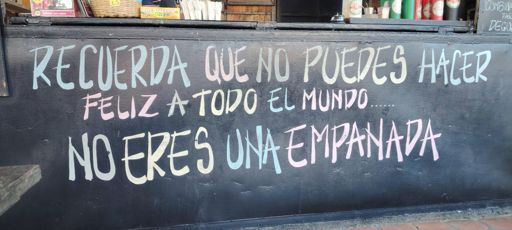 RECUERDA QUE NO PUEDES HACER
FELIZ A TODO EL MUNDO......
NO ERES UNA EMPANADA